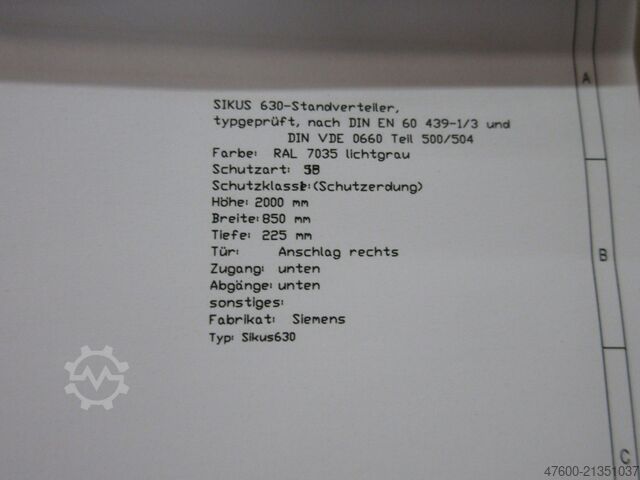 SIKUS 630-Standverteiler,
typgeprüft, nach DIN EN 60 439-1/3 und
DIN VDE 0660 Teil 500/504
Farbe: RAL 7035 lichtgrau
Schutzart:
Schutzklasse: (Schutzerdung)
Höhe: 2000 mm
Breite: 850 mm
Tiefe: 225 mm
Tür: Anschlag rechts
Zugang: unten
Abgänge: unten
sonstiges:
Fabrikat: Siemens
Typ: Sikus630
A
B
C
47600-21351037